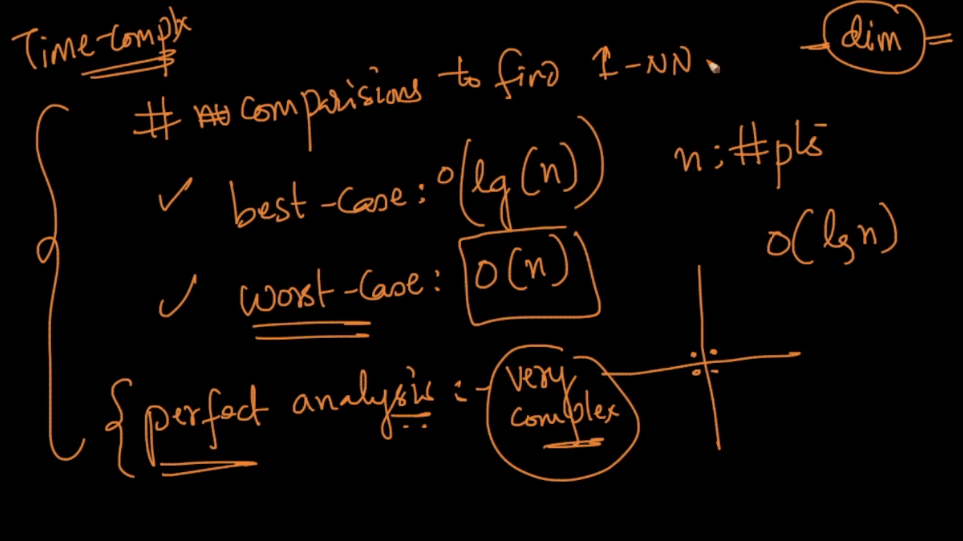 Time-compx
dim
# comparisions to find 1-NN
n: #pts
best-case: O(lg(n))
O(lgn)
worst-case: O(n)
{perfect analysis:- very
complex